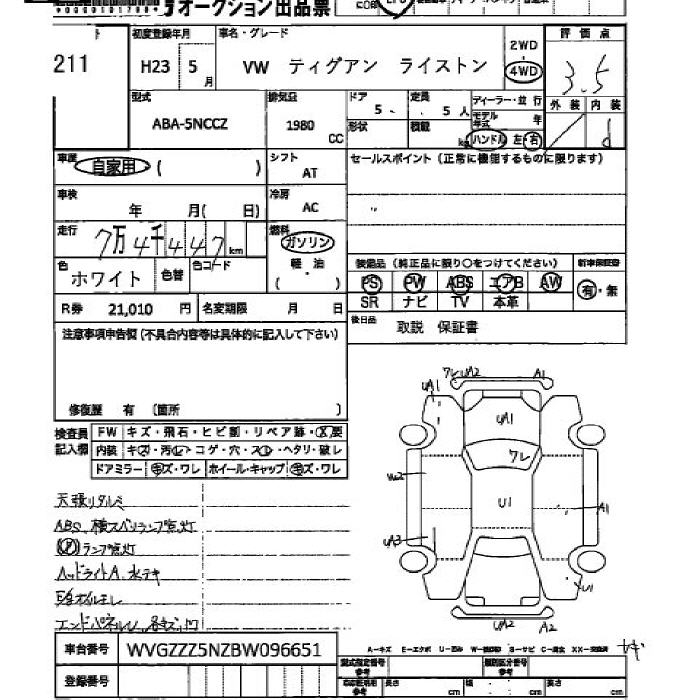 オークション出品票
211
初度登録年月
車名・グレード
H23 5月
VW ティグアン ライストン
2WD
・
4WD
評価点
3.5
外装 内装
d
型式
ABA-5NCCZ
排気量
1980 CC
ドア
5
定員
5人
形状
積載
kg
ディーラー・並行
モデル年式 年
ハンドル 左・右
車歴
自家用 ( )
シフト
AT
セールスポイント (正常に機能するものに限ります)
車検
年 月( 日)
冷房
AC
走行
7万4千447km
燃料
ガソリン
軽・油
( )
色
ホワイト
色替
色コード
装備品 (純正品に限り○をつけてください)
新車保証書
PS PW ABS エアB AW
有・無
SR ナビ TV 本革
R券 21,010 円
名変期限 月 日
後日品
取説 保証書
注意事項申告欄(不具合内容等は具体的に記入して下さい)
修復歴 有 〔箇所 〕
検査員記入欄
FW キズ・飛石・ヒビ割・リペア跡・X要
内装 キズ・汚レ・コゲ・穴・スレ・ヘタリ・破レ
ドアミラー キズ・ワレ ホイール・キャップ キズ・ワレ
天張リタルミ
ABS 横スベリランプ点灯
ランプ点灯
ヘッドライトA、水テキ
エンドパネルU
ワレ UA2 A1
UA1
UA1
ワレ
W2
U1
A1
UA3
U1
UA2 A2
車台番号 WVGZZZ5NZBW096651
A-キズ E-エクボ U-凹み W-補修跡 S-サビ C-腐食 XX-交換済
登録番号
型式指定番号
参考
類別区分番号
参考
長さ cm
幅 cm
高さ cm